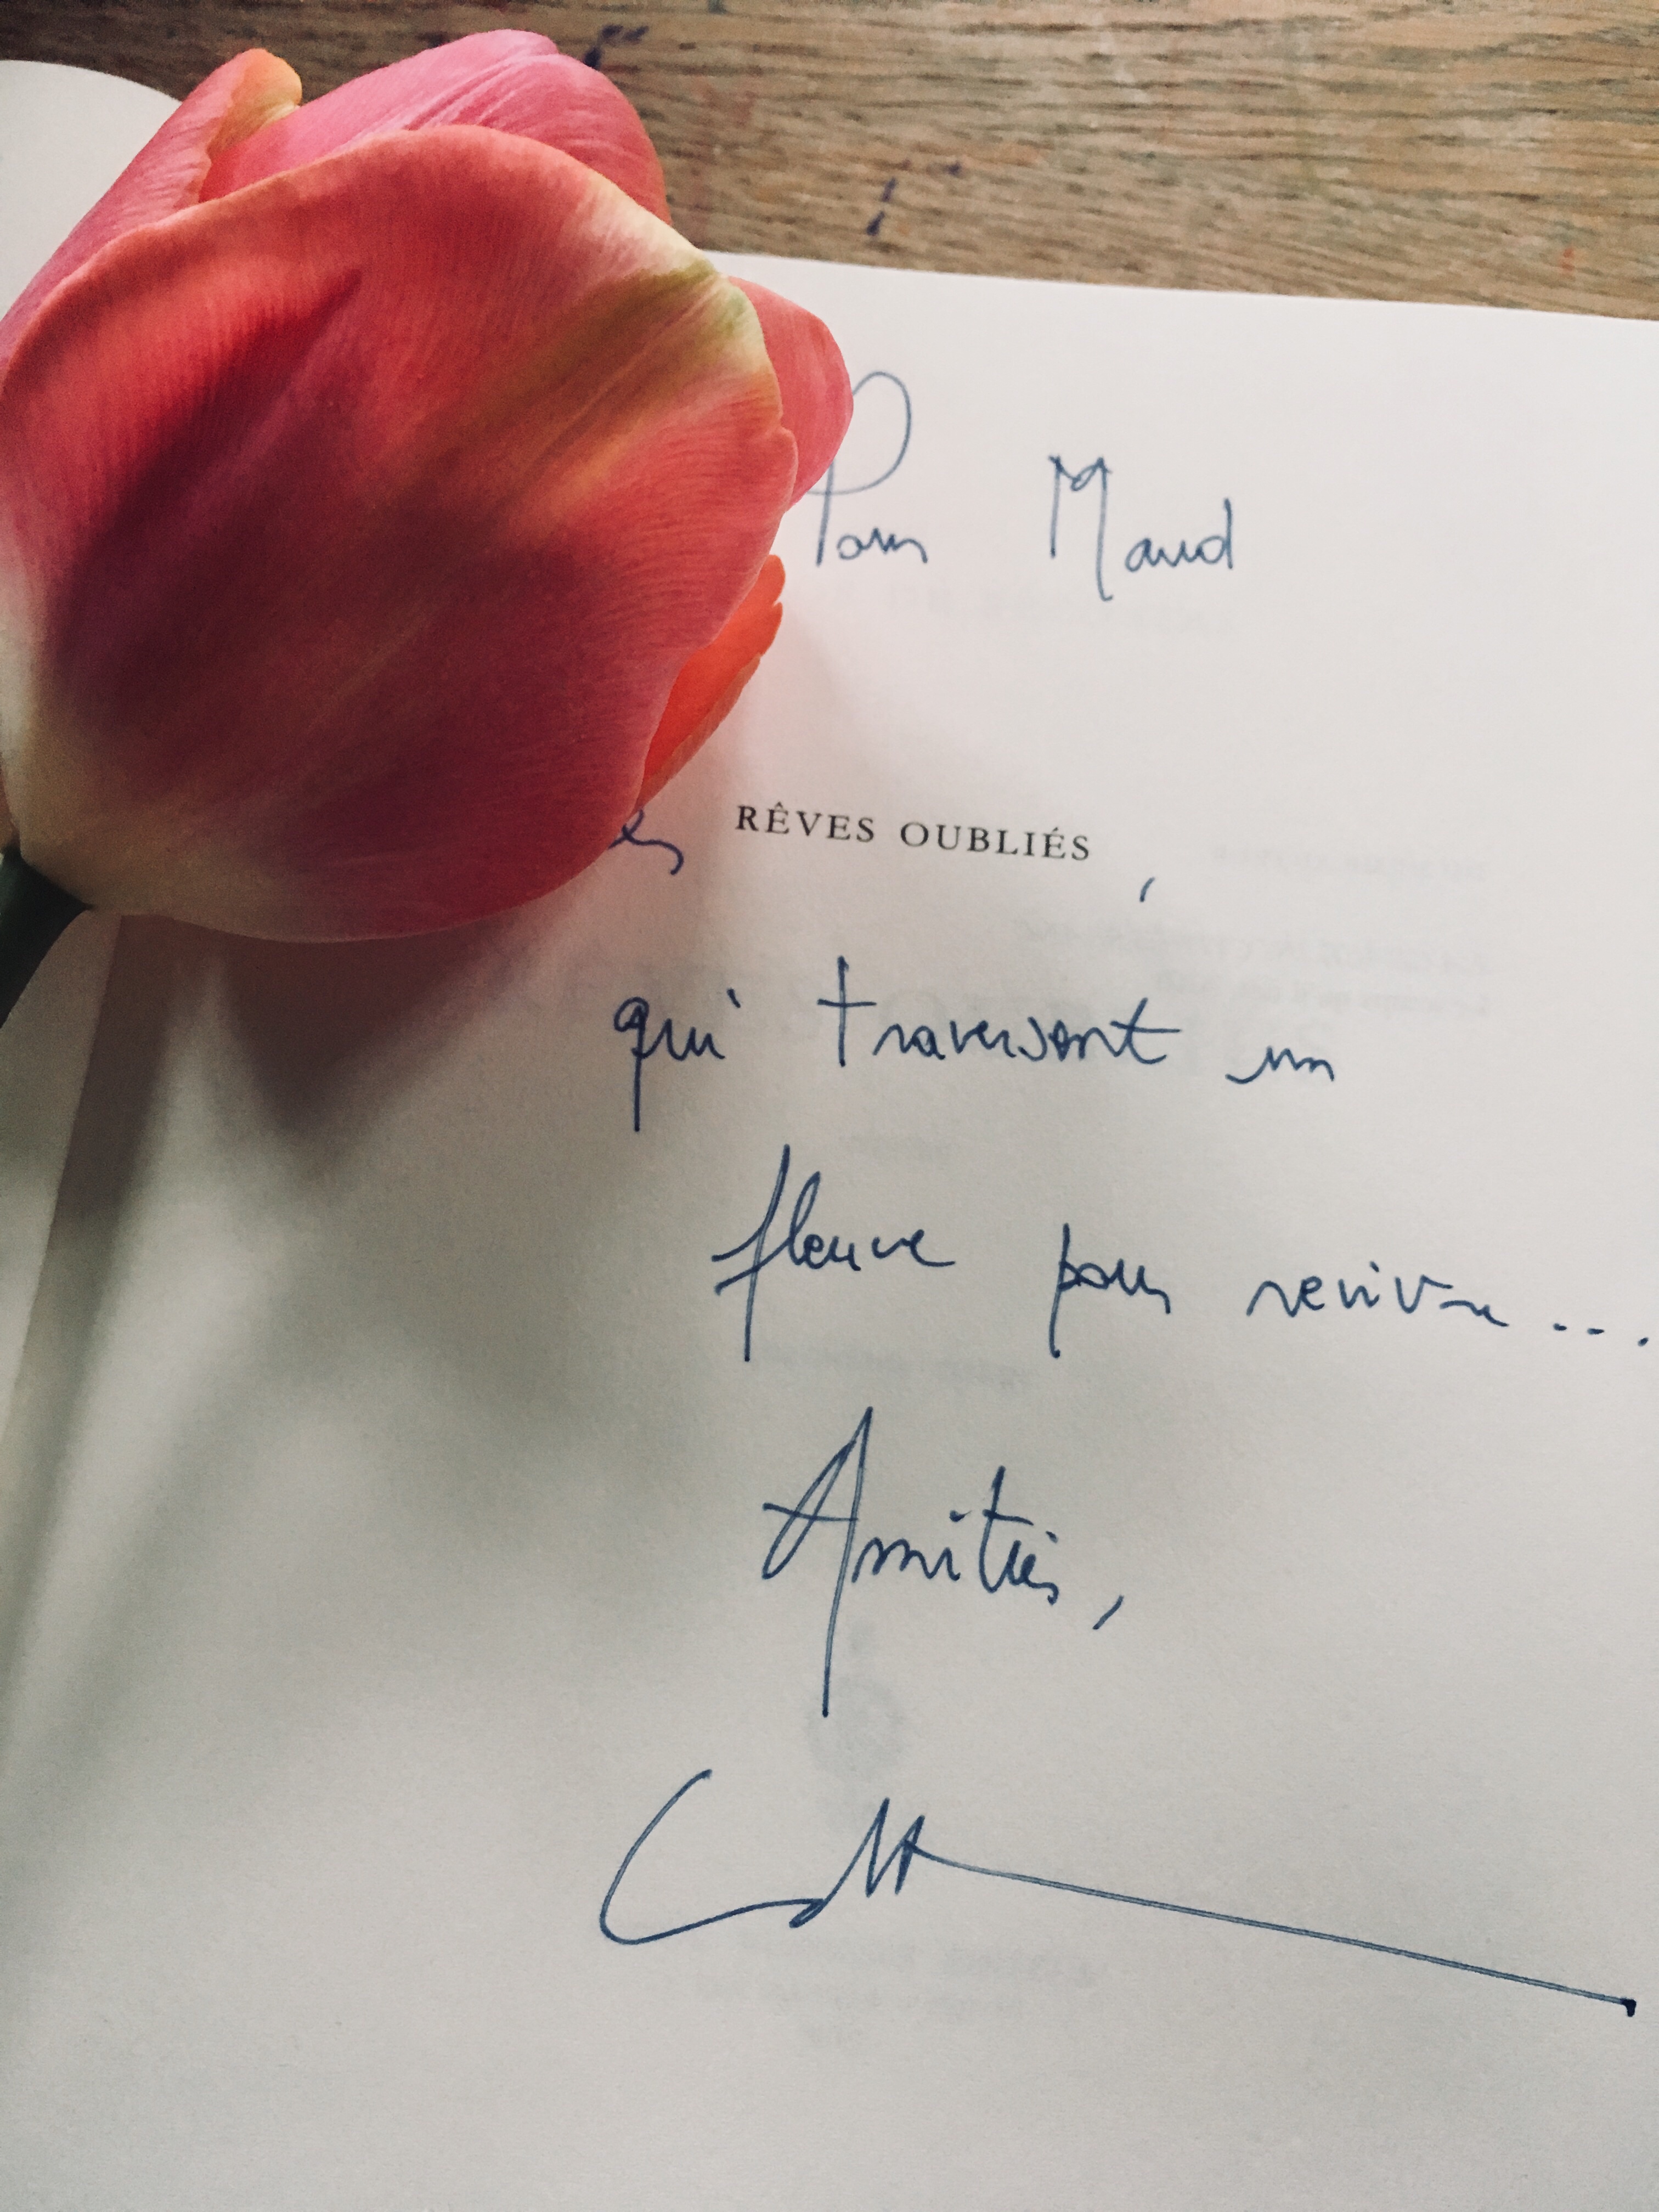 Pour Maud
es RÊVES OUBLIÉS,
qui traversent un
fleuve pour revivre...
Amitiés,